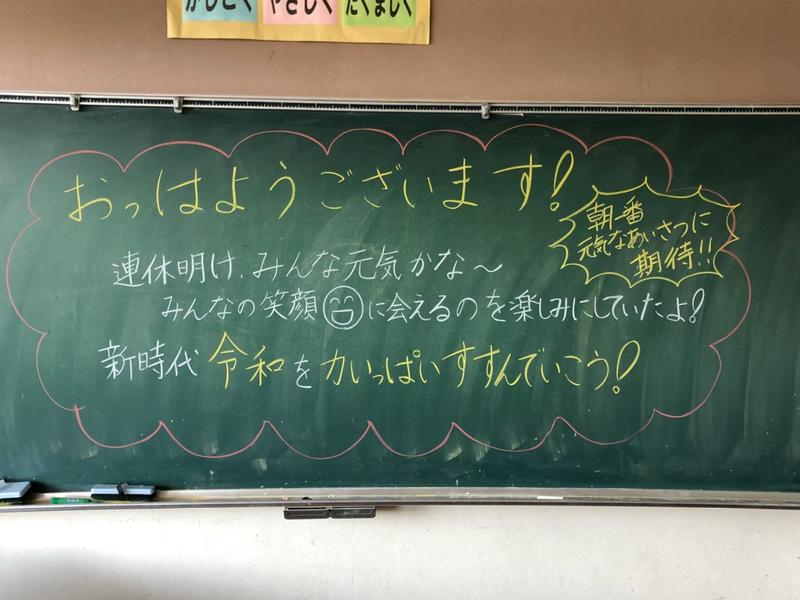 かしこく やさしく たくましく
おっはようございます!
朝一番
元気なあいさつに
期待!!
連休明け、みんな元気かな～
みんなの笑顔に会えるのを楽しみにしていたよ!
新時代 令和を力いっぱいすすんでいこう!